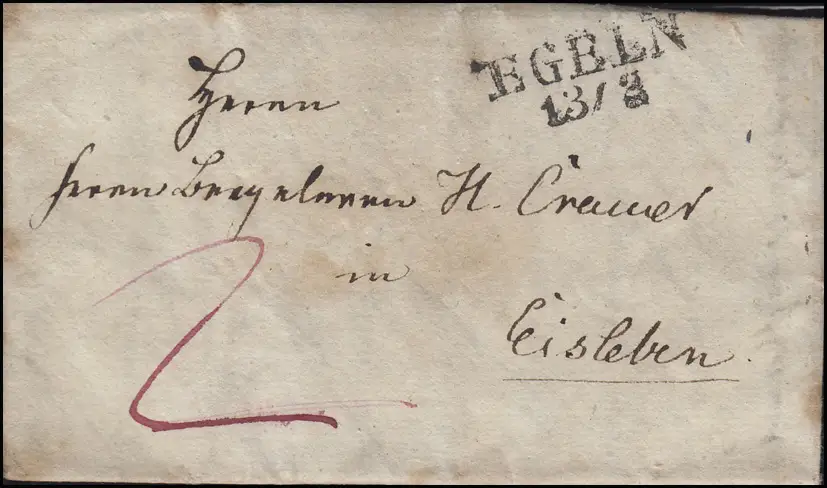 EGELN
13/2
Herrn
Herrn Bergeleven H. Cramer
in
Eisleben
2